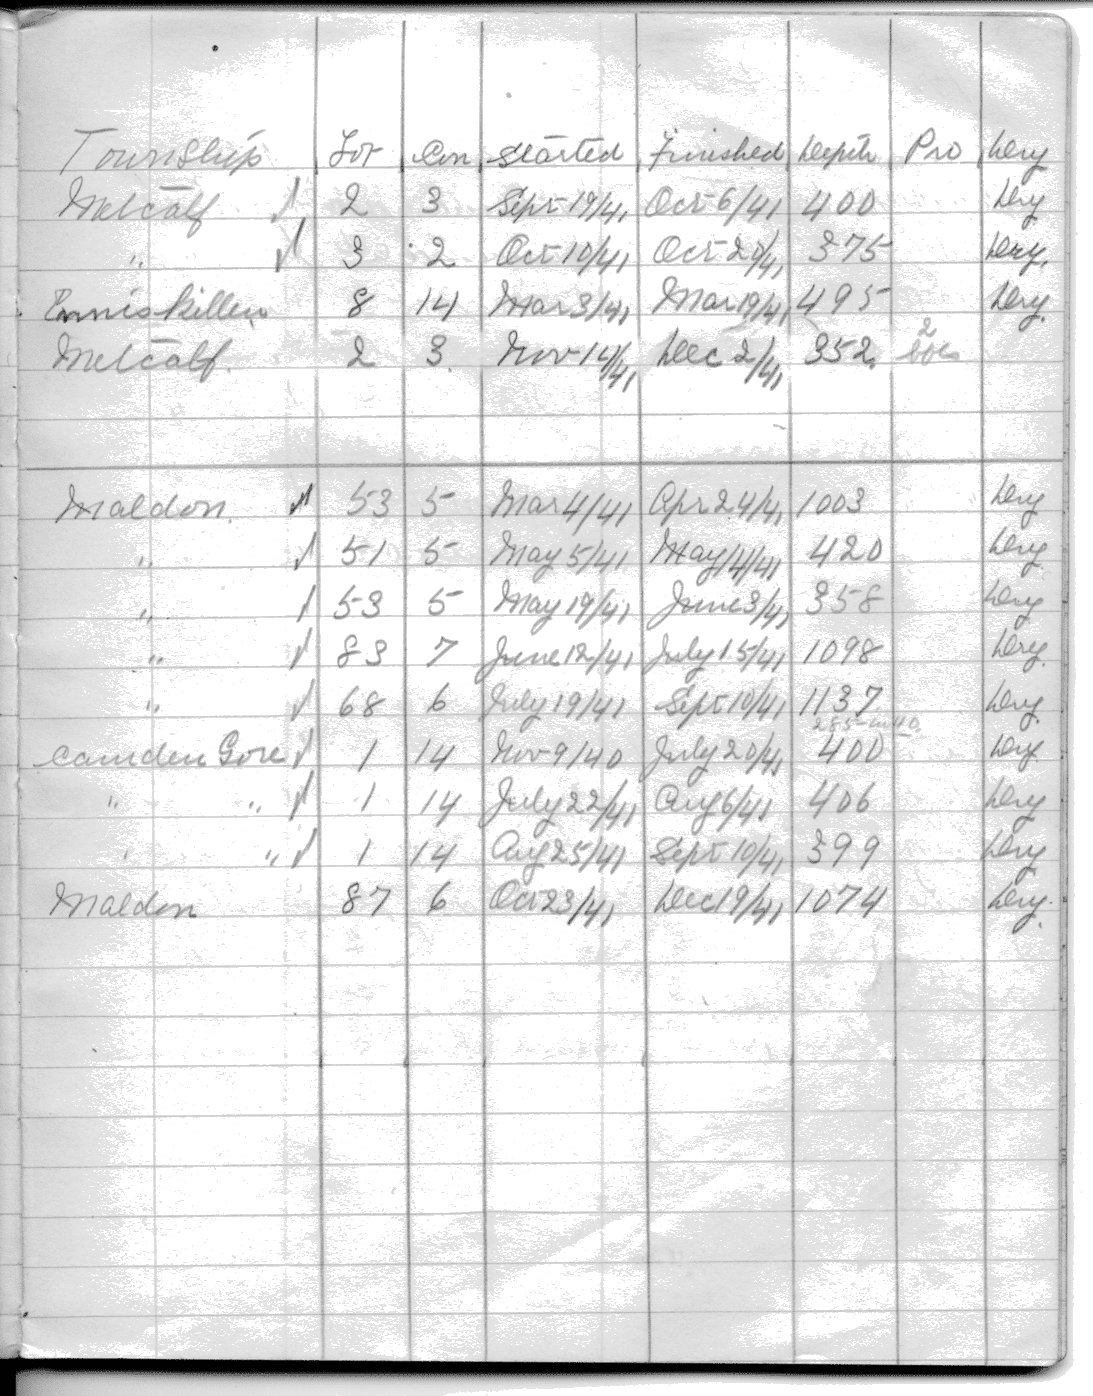 Township Lot Con Started Finished Depth Pro Dry
Metcalf ✓ 2 3 Sept 19/41 Oct 6/41 400 Dry
" ✓ 3 2 Oct 10/41 Oct 20/41 375 Dry.
Enniskillen 8 14 Mar 3/41 Mar 19/41 495 Dry.
2
Metcalf. 2 3. Nov 14/41 Dec 2/41 352.
Maldon. ✓ 53 5 Mar 4/41 Apr 24/41 1003 Dry
" ✓ 51 5 May 5/41 May 14/41 420 Dry
" ✓ 53 5 May 19/41 June 3/41 358 Dry
" ✓ 83 7 June 12/41 July 15/41 1098 Dry.
" ✓ 68 6 July 19/41 Sept 10/41 1137 Dry.
Camden Gore ✓ 1 14 Nov 9/40 July 20/41 400 Dry
" " ✓ 1 14 July 22/41 Aug 6/41 406 Dry
" " ✓ 1 14 Aug 25/41 Sept 10/41 399 Dry
Maldon 87 6 Oct 23/41 Dec 19/41 1074 Dry.